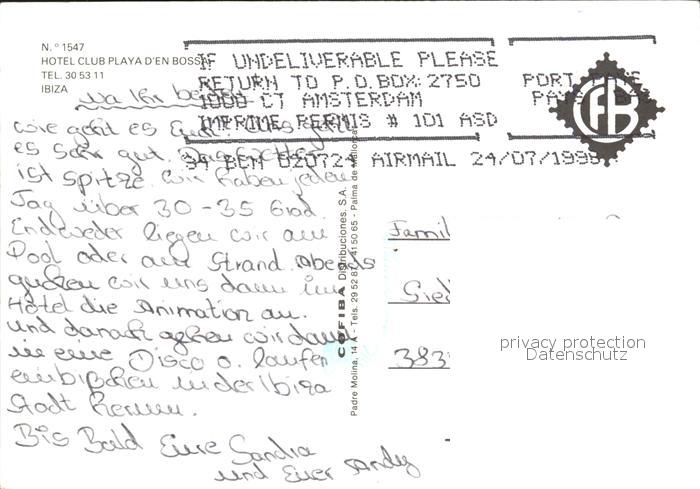 N.° 1547
HOTEL CLUB PLAYA D'EN BOSSA
TEL. 30 53 11
IBIZA
IF UNDELIVERABLE PLEASE
RETURN TO P.O.BOX: 2750
1000 CT AMSTERDAM
IMPRIME PERMIS # 101 ASD
PORT PAYE
PAYS BAS
94 BEM 020724 AIRMAIL 24/07/199
CFB
Na Ihr beiden
wie geht es Euch uns geht
es sehr gut. Das Wetter
ist spitze wir haben jeden
Tag über 30 - 35 Grad.
Endweder liegen wir am
Pool oder am Strand. Abends
gucken wir uns dann im
Hotel die Animation an.
und danach gehen wir dann
in eine Disco o. laufen
ein bißchen in der Ibiza
Stadt herum.
Bis Bald Eure Sandra
und Euer Andy
COFIBA Distribuciones, S.A.
Padre Molina, 14 A - Tels. 29 52 87 - 41 50 65 - Palma de Mallorca
Famil
Sied
383
privacy protection
Datenschutz